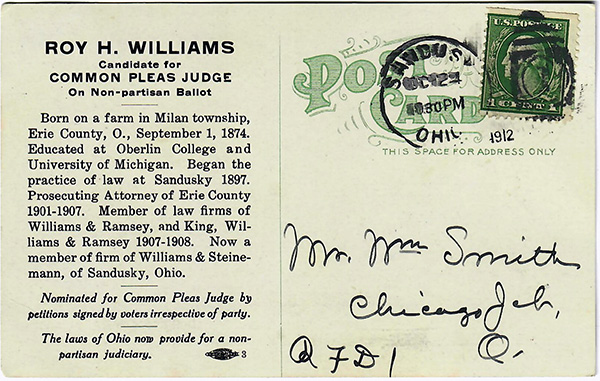 ROY H. WILLIAMS
Candidate for
COMMON PLEAS JUDGE
On Non-partisan Ballot
Born on a farm in Milan township,
Erie County, O., September 1, 1874.
Educated at Oberlin College and
University of Michigan. Began the
practice of law at Sandusky 1897.
Prosecuting Attorney of Erie County
1901-1907. Member of law firms of
Williams & Ramsey, and King, Wil-
liams & Ramsey 1907-1908. Now a
member of firm of Williams & Steine-
mann, of Sandusky, Ohio.
Nominated for Common Pleas Judge by
petitions signed by voters irrespective of party.
The laws of Ohio now provide for a non-
partisan judiciary.
3
POST
CARD
SANDUSK
OCT 24
30 PM
OHIO
1912
U.S. POSTAGE
1 CENT 1
THIS SPACE FOR ADDRESS ONLY
Mr. Wm Smith
Chicago Jct,
RFD1 O.